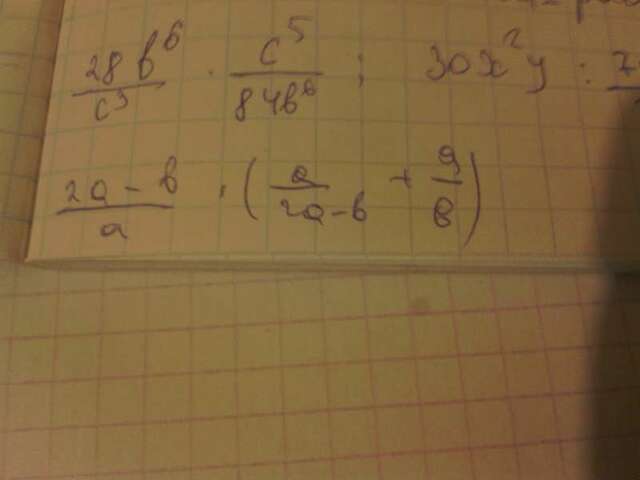 28b⁶/c³ · c⁵/84b⁶ ; 30x²y :
(2a-b)/a · (a/(2a-b) + a/b)